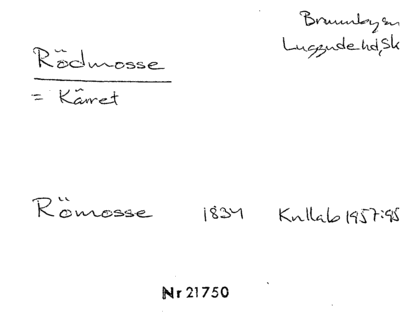 Brunnby sn
Luggude hd, Sk
Rödmosse
= Kärret
Römosse 1834 Kullab 1957:95
Nr 21750